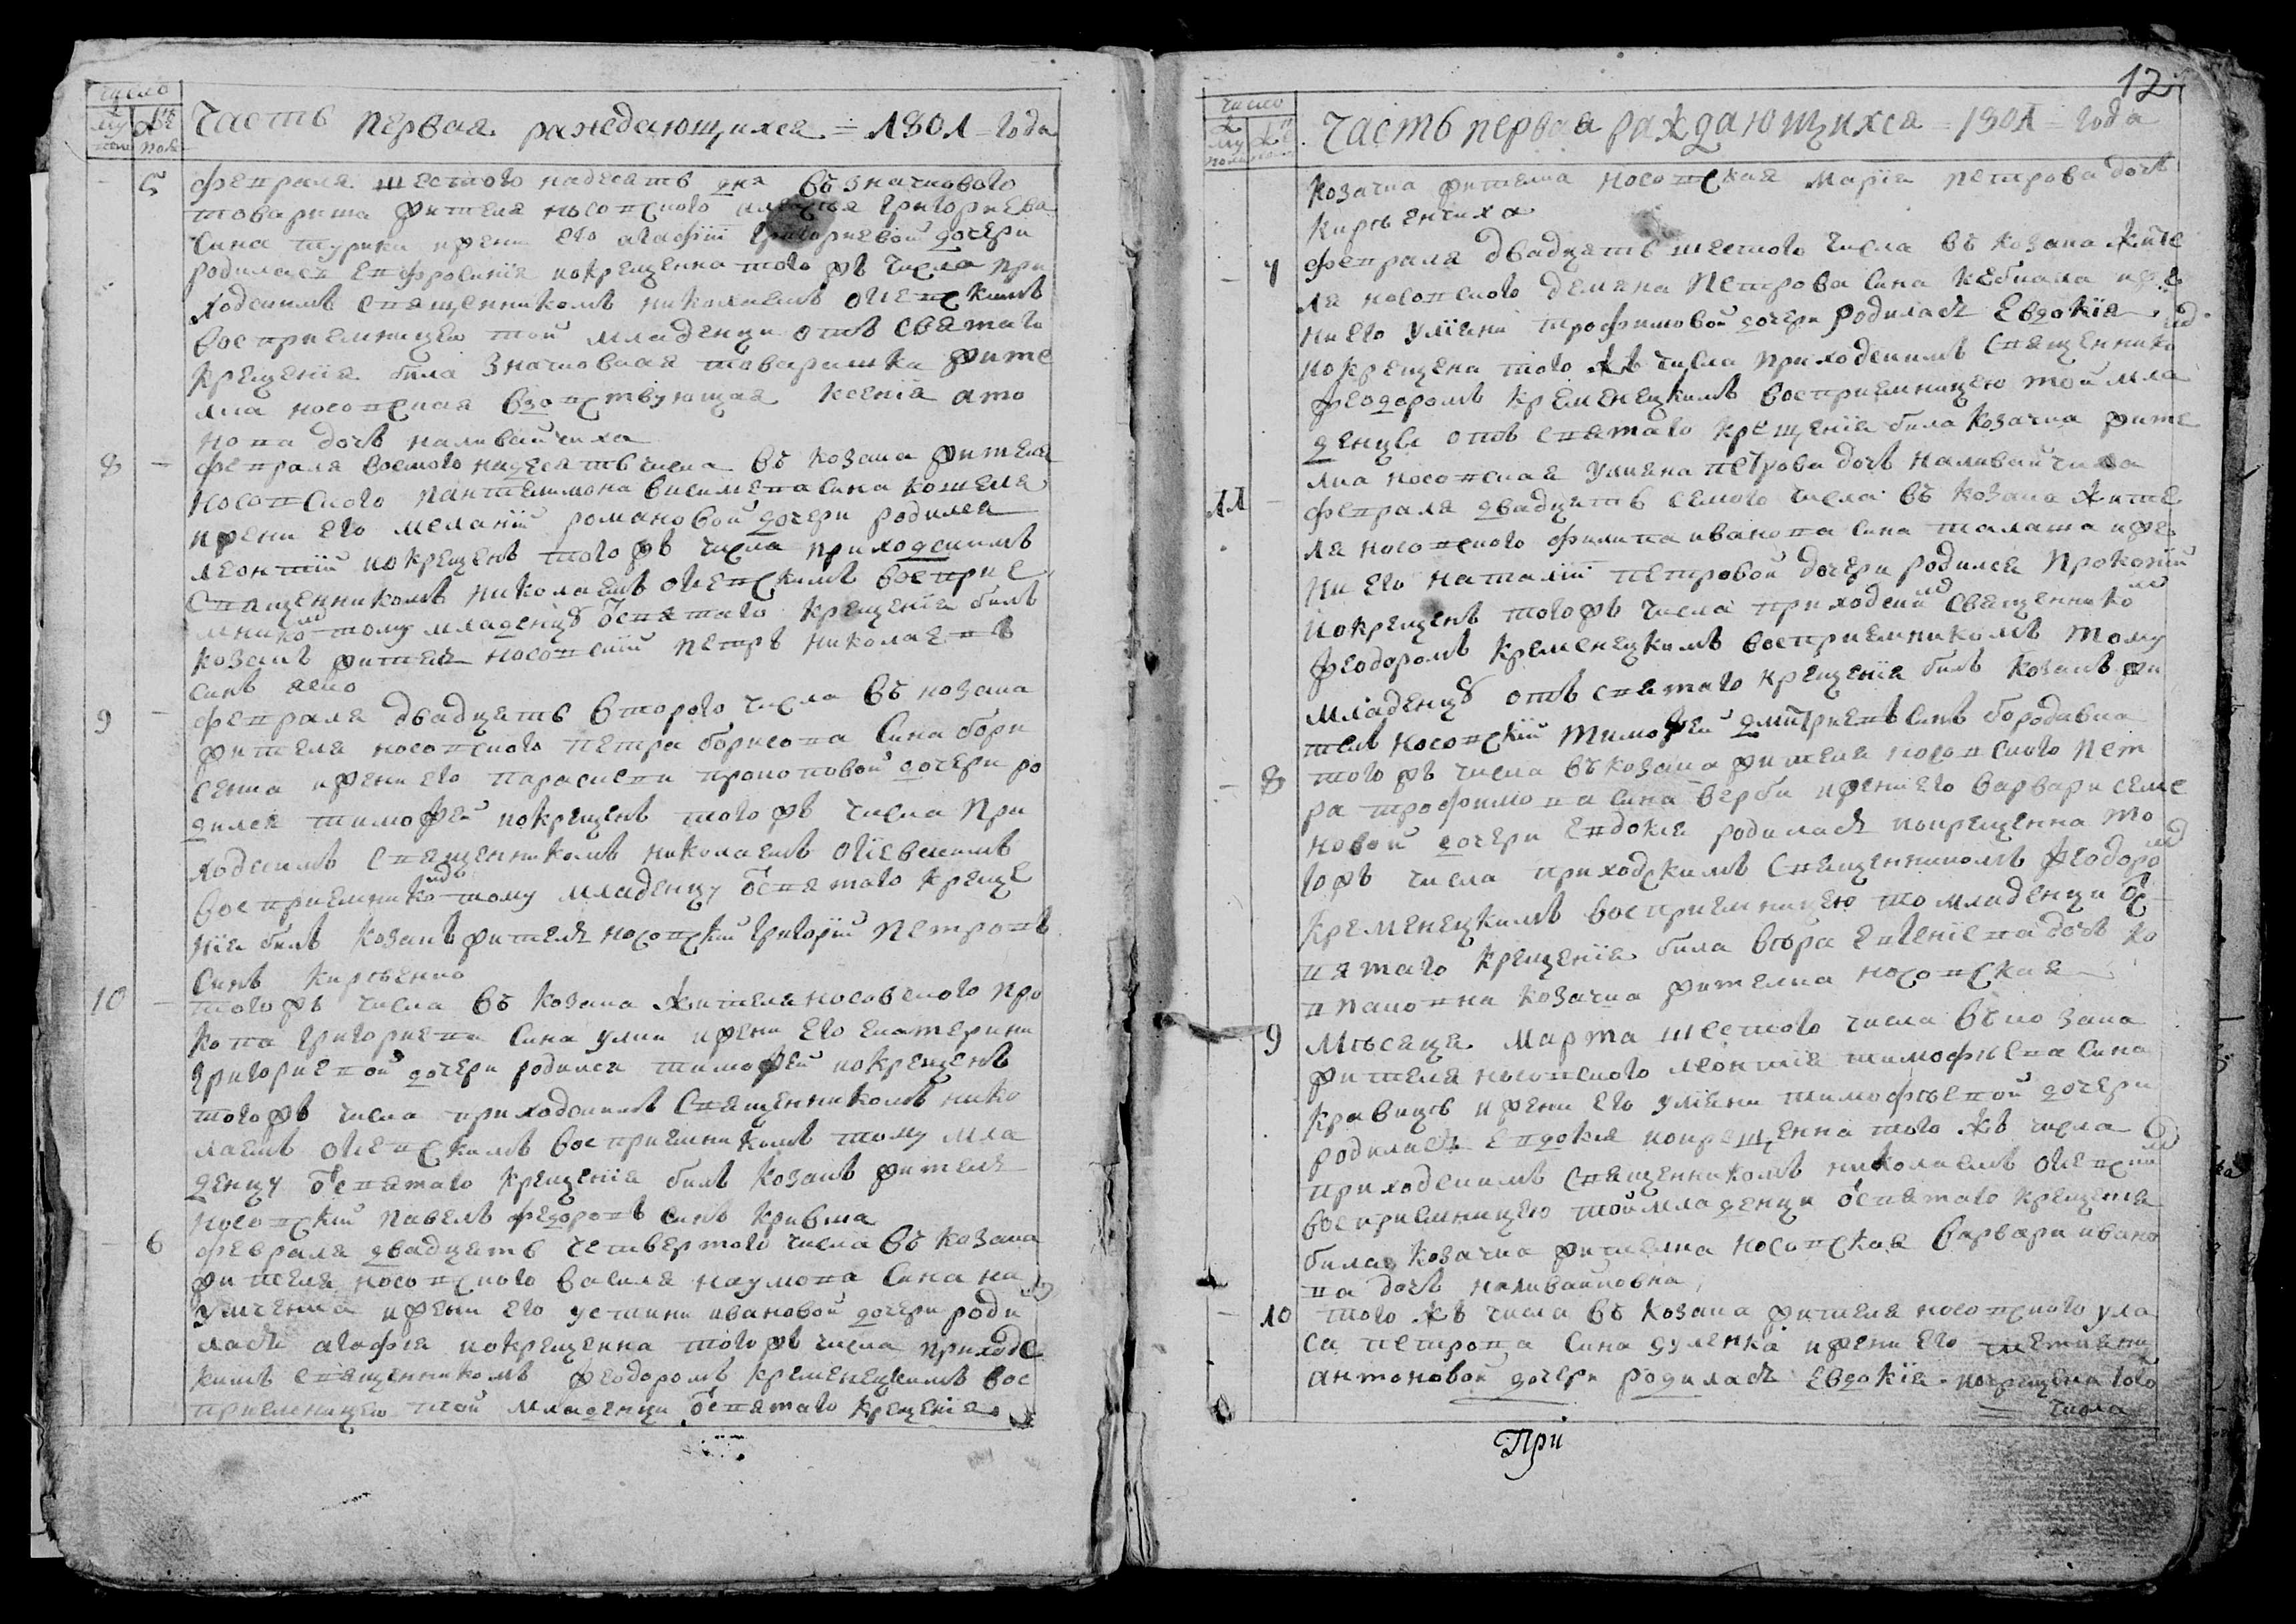 число
му
же
пола
Часть первая раждающихся = 1801 = года
5 февраля шестого надесять дня въ значкового
товариша жителя носовского Григориева
сина турики и жени его агафіи григориевой дочери
родилась евфросинія покрещенна того жъ числа при
ходскимъ священникомъ николаемъ огіевскимъ
восприемницею той младенци отъ святаго
крещенія била значковая товаришка жите
лка носовская вдовствующая ксенія
нова дочъ наливайчиха
8 – февраля восмого надесять числа въ козака жителя
носовского пантелимона сина кошеля
и жени его меланіи романовой дочери родился
леонтій покрещенъ того жъ числа приходскимъ
священникомъ николаемъ огіевскимъ восприе
мникомъ тому младенцу ѿ святаго крещенія билъ
козакъ житель носовскій петръ николаевъ
синъ
9 – февраля двадцять второго числа въ козака
жителя носовского петра борисова сина бори
сенка и жени его параскеви прокоповой дочери ро
дился тимофей покрещенъ того жъ числа при
ходскимъ священникомъ николаемъ огіевскимъ
восприемникомъ тому младенцу ѿ святаго креще
нія билъ козакъ житель носовскій григорій петровъ
синъ кирѣенко
10 – того жъ числа въ козака жителя носовского про
копа григориева сина улки и жени его екатерини
григориевой дочери родился тимофей покрещенъ
того жъ числа приходскимъ священникомъ нико
лаемъ огіевскимъ восприемникомъ тому мла
денцу ѿ святаго крещенія билъ козакъ житель
носовскій павелъ федоровъ синъ кривша
– 6 февраля двадцять четвертого числа въ козака
жителя носовского василя наумова сина на
умченка и жени его устини ивановой дочери роди
лась агафія покрещенна того жъ числа приходс
кимъ священникомъ феодоромъ кременецкимъ вос
приемницею той младенци ѿ святаго крещенія
12
число
му
пола
Часть первая раждающихся = 1801 = года
козачка жителка носовская марія петрова дочъ
кирѣенчиха
– 7 февраля двадцять шестого числа въ козака жите
ля носовского демяна петрова сина кебкала и же
ни его уліяни трофимовой дочери родилась евдокія
покрещена того жъ числа приходскимъ священникомъ
феодоромъ кременецкимъ восприемницею той мла
денци отъ святаго крещенія била козачка жите
лка носовская уліяна петрова дочъ наливайчиха
11 – февраля двадцять семого числа въ козака жите
ля носовского филипа иванова сина талаша и же
ни его наталіи петровой дочери родился прокопій
покрещенъ того жъ числа приходскимъ священникомъ
феодоромъ кременецкимъ восприемникомъ тому
младенцу отъ святаго крещенія билъ козакъ жи
тель носовскій тимофей дмитриевъ синъ бородавка
– 8 того жъ числа въ козака жителя носовского пет
ра трофимова сина верби и жени его варвари семе
новой дочери евдокія родилась покрещенна то
го жъ числа приходскимъ священникомъ феодоромъ
кременецкимъ восприемницею то младенци ѿ с
вятаго крещенія била вѣра евгеніева дочъ ко
козачка жителка носовская
– 9 мѣсяца марта шестого числа въ козака
жителя носовского леонтія тимофѣева сина
кравицѣ и жени его уліяни тимофѣевой дочери
родилась евдокія покрещенна того жъ числа
приходскимъ священникомъ николаемъ огіевскимъ
восприемницею той младенци ѿ святаго крещенія
била козачка жителка носовская варвара ивано
ва дочъ наливайковна
– 10 того жъ числа въ козака жителя носовского ула
са петрова сина дуленка и жени его тетияни
антоновой дочери родилась евдокія покрещена того
числа
При